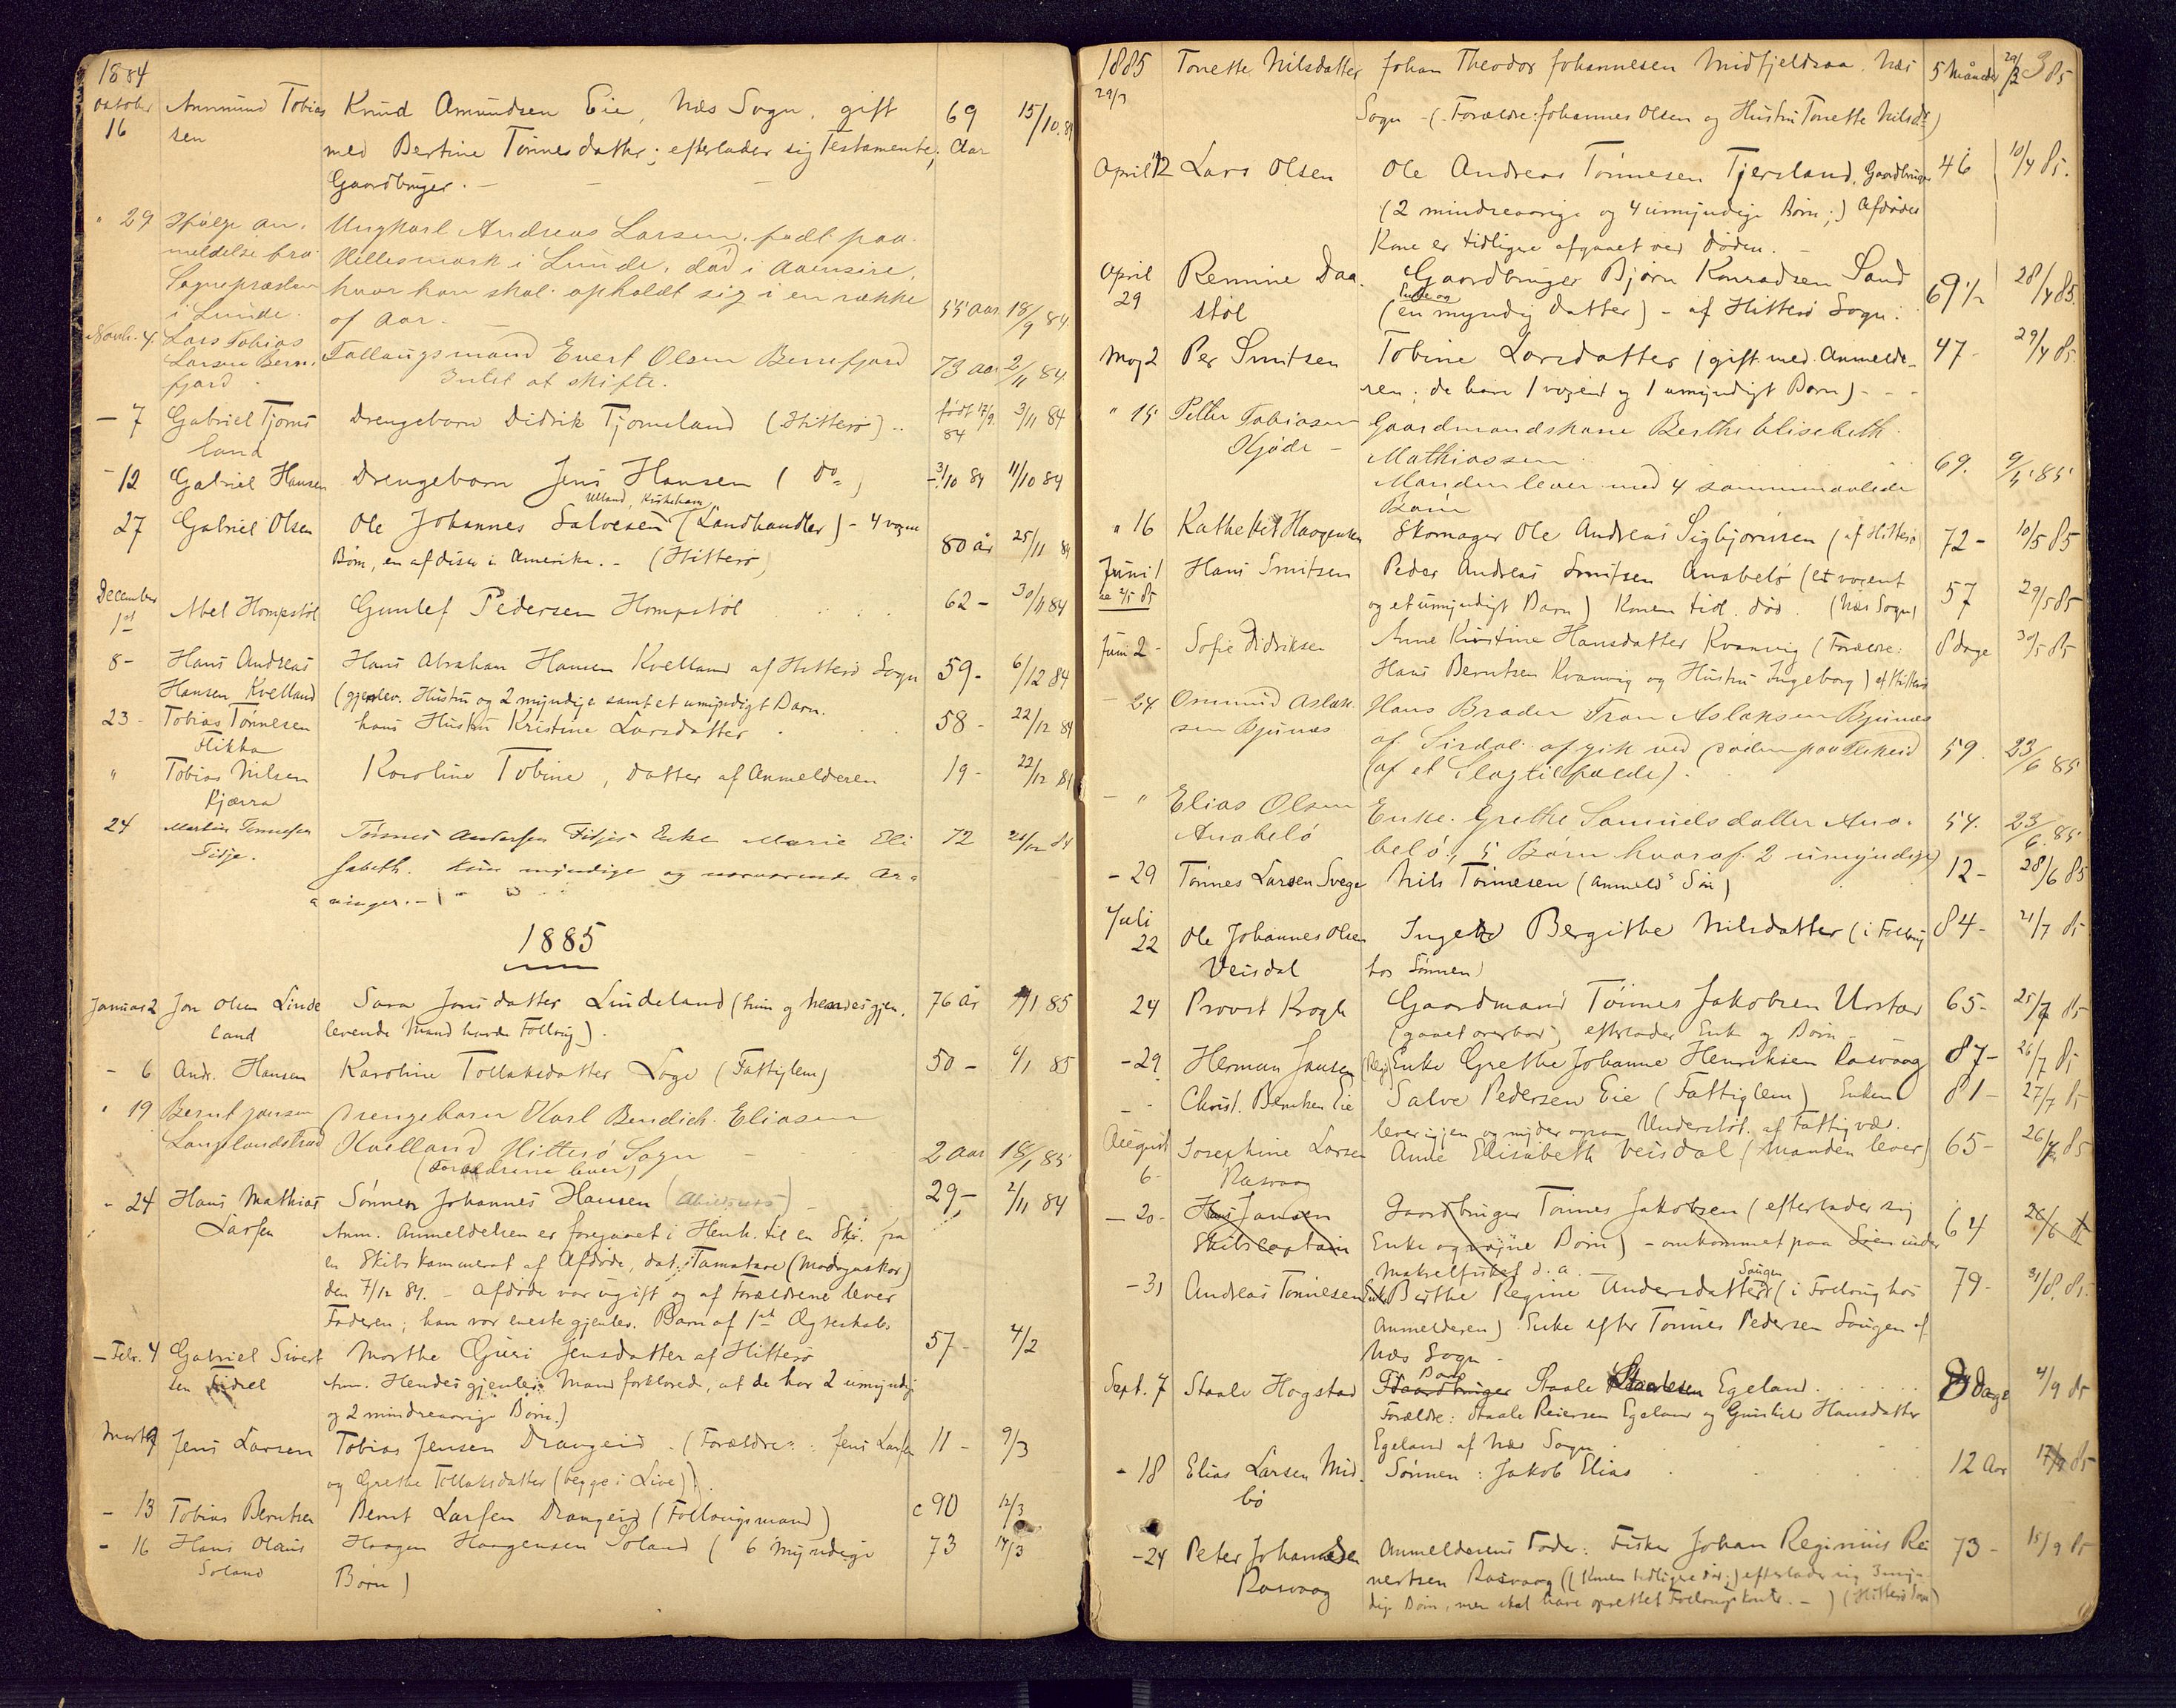 1884
October Ammund Tobias Knud Amundsen Eie, Næs Sogn, gift 69 15/10 84
16 sen med Bertine Tønnesdatter; efterlader sig Testamente; Aar
Gaardbruger. -
" 29 Ifølge an- Ungkarl Andreas Larsen, født paa
meldelse fra i Lunde, død i Aaensire,
Sognepresten hvor han skal opholdt sig i en række
i Lunde. af Aar. 55 Aar 18/9 84
Novbr. 4 Lars Tobias Follaugsmand Evert Olsen Berrefjord 73 Aar 2/11 84
Larsen Berre- Intet at skifte.
fjord
- 7 Gabriel Tjøms Drengebarn Didrik Tjomsland (Hitterø) .. født 17/9 3/11 84
land 84
- 12 Gabriel Hansen Drengebarn Jens Hansen ( Do ) 3/10 84 11/10 84
Ulland, Kirkehavn
27 Gabriel Olsen Ole Johannes Salvesen (Landhandler) - 4 voxne 80 år 25/11 84
Børn, en af disse i Amerika. - (Hitterø)
December Abel Hompstøl Gunlef Pedersen Hompstøl 62 - 30/11 84
1st
8 - Hans Andreas Hans Abraham Hansen Kvelland af Hitterø Sogn 59 - 6/12 84
Hansen Kvelland (gjenlev. Hustru og 2 myndige samt et umyndigt Barn.
23 - Tobias Tønnesen hans Hustru Kristine Larsdatter 58 - 22/12 84
Flikka
" Tobias Nilsen Karoline Tobine, Datter af Anmelderen 19 - 22/12 84
Kjærra
24 Martin Tønnessen Tønnes Andersen Fidjes Enke Marie Eli 72 84
Fidje. sabeth. Kun myndige og nærværende Ar-
vinger. -
1885
Januar 2 Jon Olsen Linde Sara Jonsdatter Lindeland (hun og hendes gjen- 76 år 1/1 85
land levende Mand havde Follaug).
- 6 Andr. Hansen Karoline Tollaksdatter Loge (Fattiglem) 50 - 6/1 85
" 19 Bernt Jansen Drengebarn Karl Bendick Eliasen
Kvelland Hitterø Sogn 2 Aar 18/1 85
(Forældrene lever)
- 24 Hans Mathias Sønnen Johannes Hansen 29 - 2/11 84
Larsen Anm. Anmeldelsen er foregaaet i Henh. til en Skr. fra
en Skibskammerat af Afdøde, dat. Tamatave (Madagaskar)
den 7/12 84. - Afdøde var ugift og af Forældrene lever
Faderen; han var eneste gjenlev. Barn af 1st Ægteskab.
- Febr. 4 Gabriel Sivert Marthe Guri Jensdatter af Hitterø 57 - 4/2
sen Anm. Hendes gjenlev. Mand forklarede, at de har 2 umyndig
og 2 mindreaarige Børn.)
Marts 9 Jens Larsen Tobias Jensen Drangeid - (Forældre: Jens Larsen 11 - 9/3
og Grethe Tollaksdatter (begge i Live)).
- 13 Tobias Berntsen Bernt Larsen Drangeid (Follougsmand) c 90 12/3
- 16 Hans Olaus Haagen Haagensen Soland ( 6 Myndige 73 14/3
Soland Børn )
1885 Tonette Nilsdatter Johan Theodor Johannesen Midfjeldsaa, Næs 5 Måneder 85
29/3 Sogn - (Forældre: Johannes Olsen og Hustru Tonette Nilsdtr)
April 12 Lars Olsen Ole Andreas Tønnesen Tjersland, Gaardbruger 46 10/4 85.
(2 mindreaarige og 4 umyndige Børn;) Afdødes
Kone er tidligere afgaaet ved Døden. -
April Remine Daa- Gaardbruger Bjørn Konradsen Sand 69 1/2 28/4 85.
Enke og
29 støl (en myndig Datter) - af Hitterø Sogn.
Maj 2 Per Smitsen Tobine Larsdatter (gift med Anmelde- 47 - 29/4 85
ren; de have 1 voxent og 1 umyndigt Barn) - - -
" 15 Peter Tobiasen Gaardmandskone Berthe Elisebeth
Kjøde - Mathiassen. 69. 9/5 85
Manden lever med 4 sammenavlede
Børn
" 16 Katheket Haagensen Skomager Ole Andreas Sigbjørnsen (af Hitterø) 72 - 10/5 85
Juni 1 Hans Smitsen Peder Andreas Smitsen Anabelø (et voxent 57 29/5 85
og et umyndigt Barn) Konen tidl. død. (Næs Sogn)
Juni 2 - Sofie Didriksen Anne Kristine Hansdatter Kvanvig (Forældre: 8 dage 30/5 85
Hans Berntsen Kvanvig og Hustru Ingeborg) af Hitterø
- 24 Osmund Aslak- Hans Broder Tron Aslaksen Bjunæs
sen Bjunæs af Sirdal afgik ved Døden paa Flikeid 59. 23/6 85
(af et Slagtilfælde).
- " Elias Olsen Enke Grethe Samuelsdatter Ana- 54. 23/6 85
Anabelø belø, 5 Børn hvoraf 2 umyndige)
- 29 Tønnes Larsen Svege Nils Tønnesen (Anmelds Søn) 12 - 28/6 85
Juli
22 Ole Johannes Olsen Bergithe Nilsdatter (i Follaug 84 - 21/7 85
Veisdal hos Sønnen)
24 Provst Krogh Gaardmand Tønnes Jakobsen Urstad 65 - 25/7 85
(gaaet overbord) efterlader Enke og Børn
- 29 Herman Jansen Enke Grethe Johanne Henriksen Rasvaag 87 - 26/7 85
- - Christ. Berntsen Eie Salve Pedersen Eie (Fattiglem) Enken 81 - 27/7 85
lever igjen og nyder ogsaa Understøt. af Fattigvæs.
August Josephine Larsen Ane Elisabeth Veisdal (Manden lever) 65 - 26/7 85
6 - Rasvaag
- 20 - Hans Jansen Gaardbruger Tønnes Jakobsen (efterlader sig 64 26/6
Skibscaptain Enke og voxne Børn) - omkommet paa Søen under
Makrelfisket d. a.
Saugen
- 31 Andreas Tønnesen Enke Birthe Regine Andersdatter (i Follaug hos 79 - 31/8 85.
Anmelderen). Enke efter Tønnes Pedersen Saugen af
Næs Sogn -
Barn
Sept. 7 Staale Hogstad Gaardbruger Staale Staalesen Egeland . . . . 8 dage 4/9 85
Forældre: Staale Reiersen Egeland og Gunhild Hansdatter
Egeland af Næs Sogn
- 18 Elias Larsen Mid- Sønnen: Jakob Elias 12 Aar 85
bø
- 24 Peter Johannesen Anmelderens Fader: Fisker Johan Reginius Rei 73 - 15/9 85
Rasvaag nertsen Rasvaag ((Konen tidligere død;) efterlader sig 3 myn-
dige Børn, men skal have oprettet Follaugskontr. - ) (Hitterø Sogn)